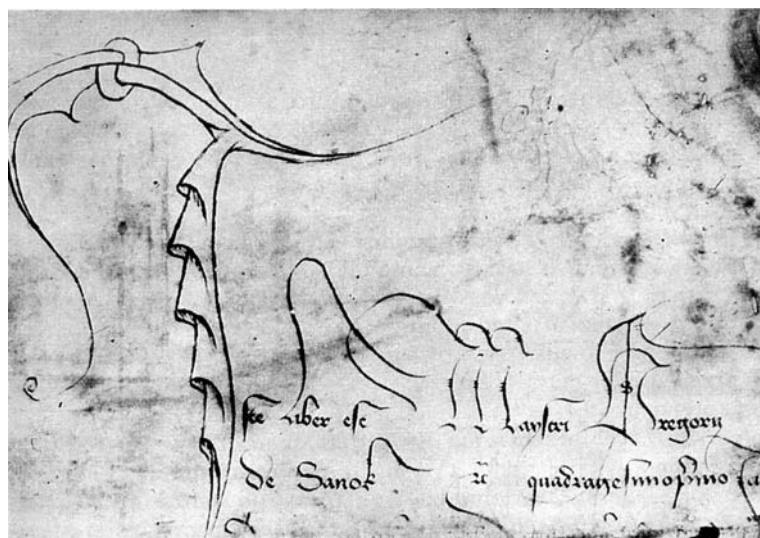 Iste liber est Magistri Gregorii
de Sanok rc quadragesimoprimo